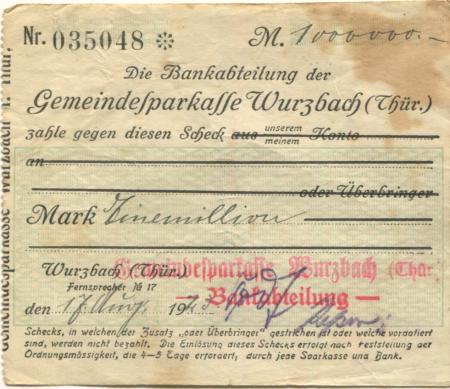 Nr. 035048 ✻ M. 1000000.-
Die Bankabteilung der
Gemeindesparkasse Wurzbach (Thür.)
zahle gegen diesen Scheck aus unserem meinem Konto
an
oder Überbringer
Mark Einemillion
Wurzbach (Thür.)
Fernsprecher № 17
Gemeindesparkasse Wurzbach (Thür
— Bankabteilung —
den 17. Aug. 1923
Schecks, in welchen der Zusatz „oder Überbringer" gestrichen ist oder welche vordatiert
sind, werden nicht bezahlt. Die Einlösung dieses Schecks erfolgt nach Feststellung der
Ordnungsmässigkeit, die 4—5 Tage erfordert, durch jede Sparkasse und Bank.
Gemeindesparkasse Wurzbach i. Thür.